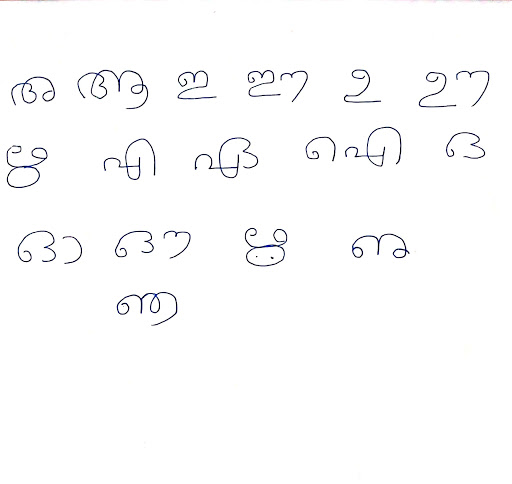 അ ആ ഇ ഈ ഉ ഊ
ഋ എ ഏ ഐ ഒ
ഓ ഔ ൠ ണ
ഞ